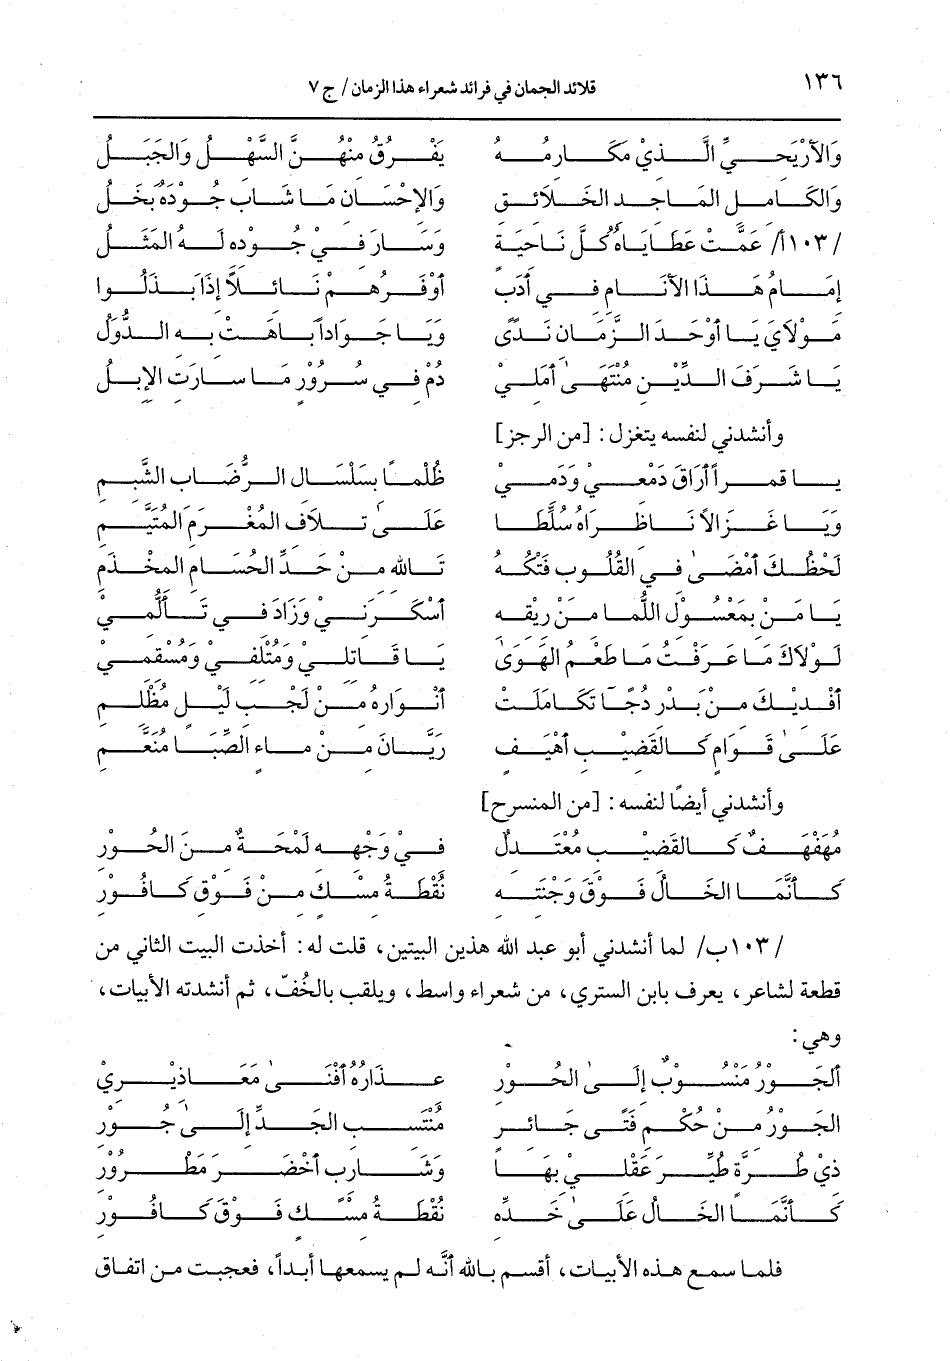 ١٣٦ قلائد الجمان في فرائد شعراء هذا الزمان / ج ٧
وَالأَرْيَحيِّ الَّذيْ مَكَارمُهُ يَفْرُقُ منْهُنَّ السَّهْلُ وَالجَبَلُ
وَالكَامل المَاجد الخَلَائق وَالإحْسَان مَا شَابَ جُوْدَهُ بَخَلُ
/١٠٣أ/ عَمَّتْ عَطَايَاهُ كُلَّ نَاحيَة وَسَارَ فيْ جُوْده لَهُ المَثَلُ
إمَامُ هَذَا الأَنَام في أدَب أوْفَرُهُمْ نَائلاً إذَا بَذَلُوا
مَوْلاَيَ يَا أوْحَدَ الزَّمَان نَدًى وَيَا جَوَاداً بَاهَتْ به الدُّوَلُ
يَا شَرَفَ الدِّيْن مُنْتَهَىٰ أمَليْ دُمْ فيْ سُرُوْر مَا سارَت الإبلُ
وأنشدني لنفسه يتغزل: [من الرجز]
يا قمراً أرَاقَ دَمْعيْ وَدَميْ ظُلْماً بسَلْسَال الرُّضَاب الشَّبم
وَيَا غَزَالاً نَاظرَاهُ سُلِّطَا عَلَىٰ تَلاَف المُغْرَم المُتَيَّم
لَحْظُكَ أمْضَىٰ في القُلُوب فَتْكُهُ تَالله منْ حَدِّ الحُسَام المخْذَم
يَا مَنْ بمَعْسُوْل اللَّمَا منْ ريْقه أسْكَرَنيْ وَزَادَ في تَألُّميْ
لَوْلاَكَ مَا عَرَفْتُ مَا طَعْمُ الهَوَىٰ يَا قَاتليْ وَمُتْلفيْ وَمُسْقميْ
أفْديْكَ منْ بَدْر دُجًا تَكَامَلَتْ أنْوَارهُ منْ لَجْب لَيْل مُظْلم
عَلَىٰ قَوَام كَالقَضيْب أهْيَف رَيَّانَ منْ مَاء الصِّبَا مُنَعَّم
وأنشدني أيضًا لنفسه: [من المنسرح]
مُهَفْهَفٌ كَالقَضيْب مُعْتَدلٌ فيْ وَجْهه لَمْحَةٌ منَ الحُوْر
كَأنَّمَا الخَالُ فَوْقَ وَجْنَته نُقْطَةُ مسْك منْ فَوْق كَافُوْر
/١٠٣ب/ لما أنشدني أبو عبد الله هذين البيتين، قلت له: أخذت البيت الثاني من
قطعة لشاعر، يعرف بابن الستري، من شعراء واسط، ويلقب بالخُفّ، ثم أنشدته الأبيات،
وهي:
ألجَوْرُ مَنْسُوْبٌ إلَىٰ الحُوْر عذَارُهُ أفْنَىٰ مَعَاذيْريْ
الجَوْرُ منْ حُكْم فَتًى جَائر مُنْتَسب الجَدِّ إلَىٰ جُوْر
ذيْ طُرَّة طُيِّرَ عَقْليْ بهَا وَشَارب أخْضَرَ مَطْرُوْر
كَأنَّمَا الخَالُ عَلَىٰ خَدِّه نُقْطَةُ مسْك فَوْقَ كَافُوْر
فلما سمع هذه الأبيات، أقسم بالله أنَّه لم يسمعها أبداً، فعجبت من اتفاق